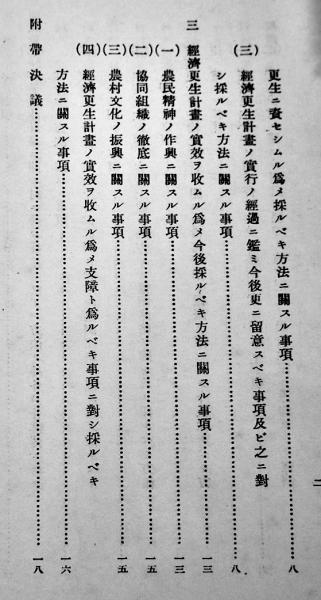 更生ニ資セシムル爲メ採ルベキ方法ニ關スル事項……八
(三) 經濟更生計畫ノ實行ノ經過ニ鑑ミ今後更ニ留意スベキ事項及ビ之ニ對
シ採ルベキ方法ニ關スル事項……八
三 經濟更生計畫ノ實效ヲ收ムル爲メ今後採ルベキ方法ニ關スル事項……一三
(一) 農民精神ノ作興ニ關スル事項……一三
(二) 協同組織ノ徹底ニ關スル事項……一五
(三) 農村文化ノ振興ニ關スル事項……一五
(四) 經濟更生計畫ノ實效ヲ收ムル爲メ支障ト爲ルベキ事項ニ對シ採ルベキ
方法ニ關スル事項……一六
附帶決議……一八
二